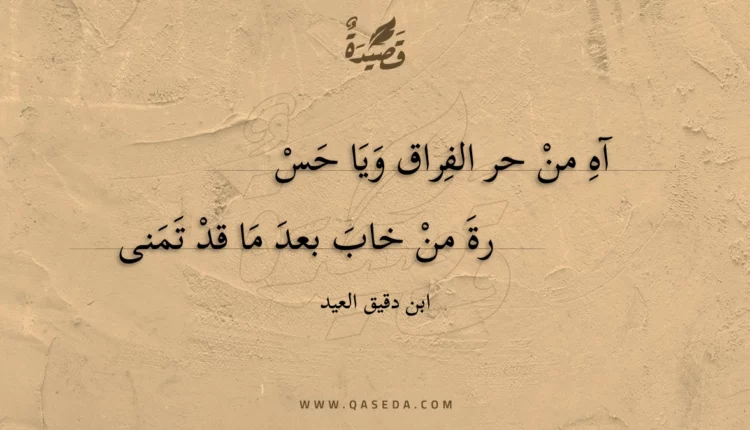 قَصِيدَةٌ
آهِ منْ حر الفِراق وَيَا حَسْ
رةَ منْ خابَ بعدَ مَا قدْ تَمَنى
ابن دقيق العيد
WWW.QASEDA.COM